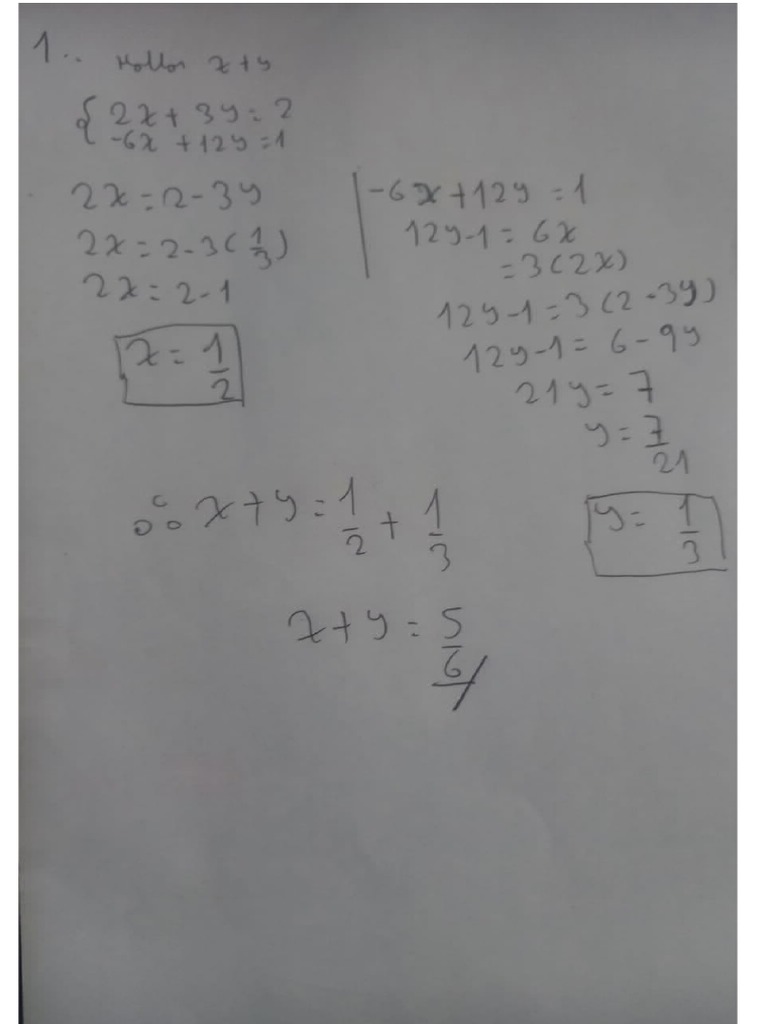 1.. Hallar x+y
{ 2x + 3y = 2
-6x + 12y = 1
2x = 2 - 3y
2x = 2 - 3 (1/3)
2x = 2 - 1
x = 1/2
-6x + 12y = 1
12y - 1 = 6x
= 3 (2x)
12y - 1 = 3 (2 - 3y)
12y - 1 = 6 - 9y
21y = 7
y = 7/21
y = 1/3
∴ x + y = 1/2 + 1/3
x + y = 5/6